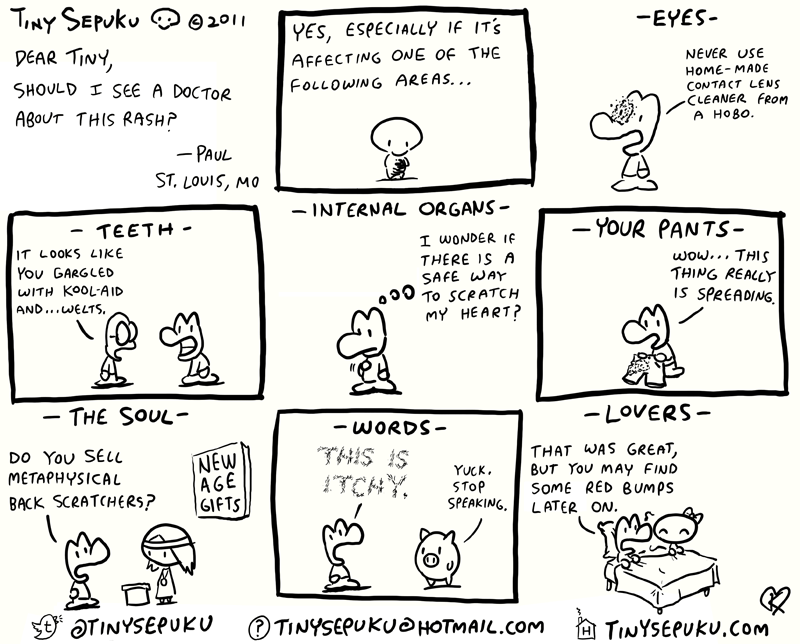 TINY SEPUKU © 2011
DEAR TINY,
SHOULD I SEE A DOCTOR
ABOUT THIS RASH?
—PAUL
ST. LOUIS, MO
YES, ESPECIALLY IF IT'S
AFFECTING ONE OF THE
FOLLOWING AREAS...
-EYES-
NEVER USE
HOME-MADE
CONTACT LENS
CLEANER FROM
A HOBO.
- TEETH -
IT LOOKS LIKE
YOU GARGLED
WITH KOOL-AID
AND...WELTS.
- INTERNAL ORGANS-
I WONDER IF
THERE IS A
SAFE WAY
TO SCRATCH
MY HEART?
-YOUR PANTS-
WOW... THIS
THING REALLY
IS SPREADING.
- THE SOUL-
DO YOU SELL
METAPHYSICAL
BACK SCRATCHERS?
NEW
AGE
GIFTS
-WORDS-
THIS IS
ITCHY.
YUCK.
STOP
SPEAKING.
-LOVERS-
THAT WAS GREAT,
BUT YOU MAY FIND
SOME RED BUMPS
LATER ON.
t @TINYSEPUKU
? TINYSEPUKU@HOTMAIL.COM
H TINYSEPUKU.COM